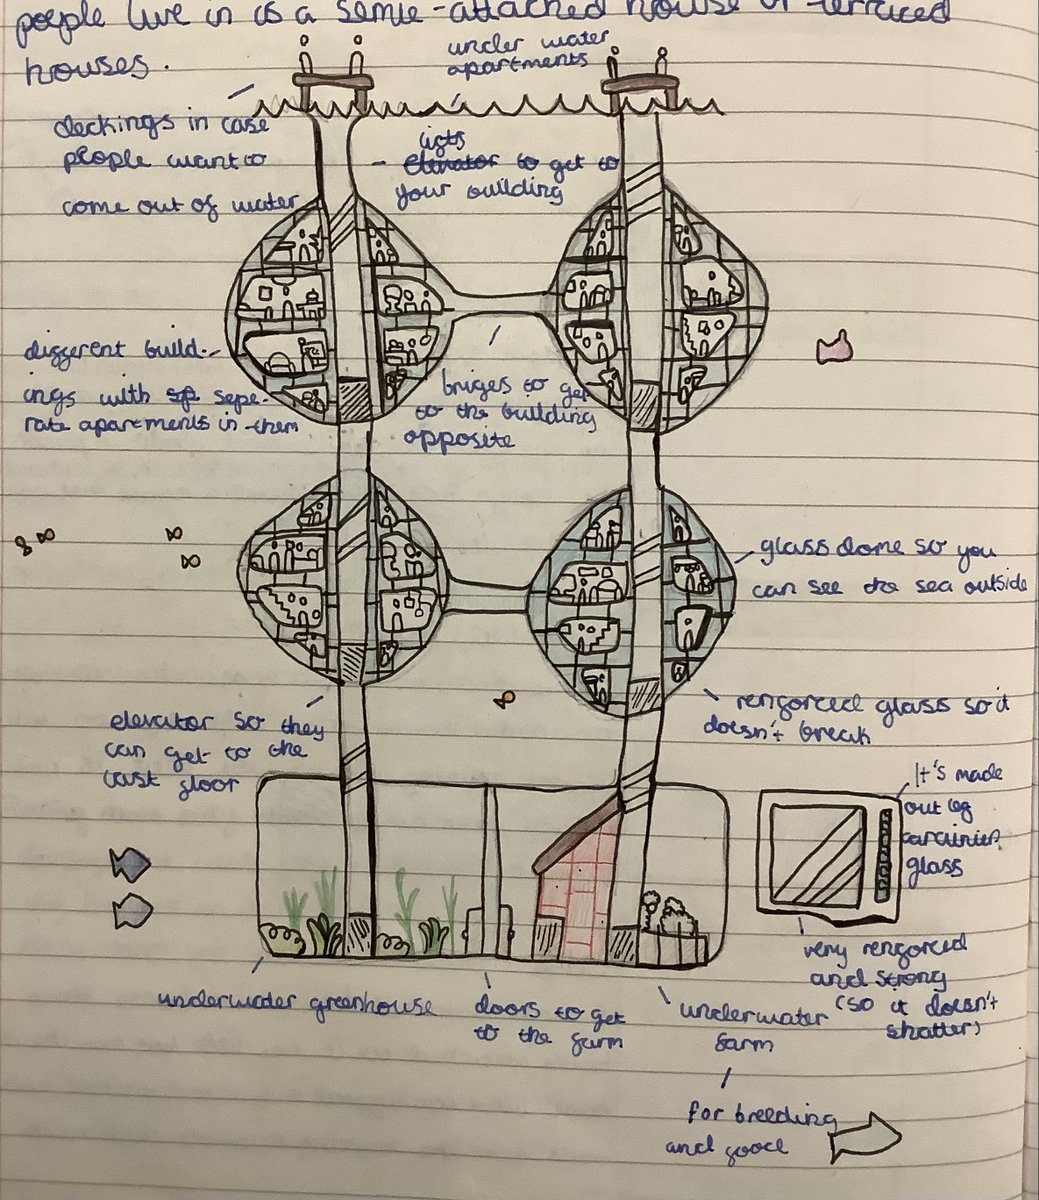 people live in is a semie-attached house or terriced
houses.
under water
apartments
deckings in case
people want to
come out of water
lifts
- elevator to get to
your building
different build-
ings with sp sepe-
rate apartments in them
briges to get
to the building
opposite
glass dome so you
can see the sea outside
elevator so they
can get to the
last floor
renforced glass so it
doesn't break
It's made
out of
glass
very renforced
and strong
(so it doesn't
shatter)
underwater greenhouse
doors to get
to the farm
underwater
farm
for breeding
and food